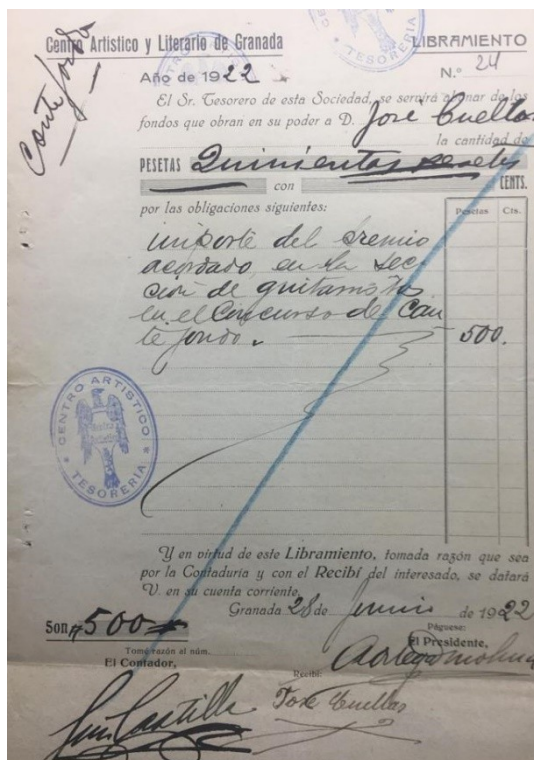 Cante jondo
Centro Artístico y Literario de Granada
LIBRAMIENTO
TESORERIA
Año de 1922
N.º 24
El Sr. Tesorero de esta Sociedad, se servirá abonar de los
fondos que obran en su poder a D. José Cuellas
la cantidad de
PESETAS Quinientas pesetas
con CENTS.
por las obligaciones siguientes:
Pesetas Cts.
importe del premio
acordado en la sec-
ción de guitarristas
en el Concurso de Can
te jondo. 500.
CENTRO ARTISTICO
TESORERIA
Y en virtud de este Libramiento, tomada razón que sea
por la Contaduría y con el Recibí del interesado, se datará
V. en su cuenta corriente.
Granada 28 de Junio de 1922
Son # 500 #
Páguese:
El Presidente,
Tomé razón al núm.
El Contador,
Recibí:
Antonio Ortega Molina
Luis Castilla
José Cuellas